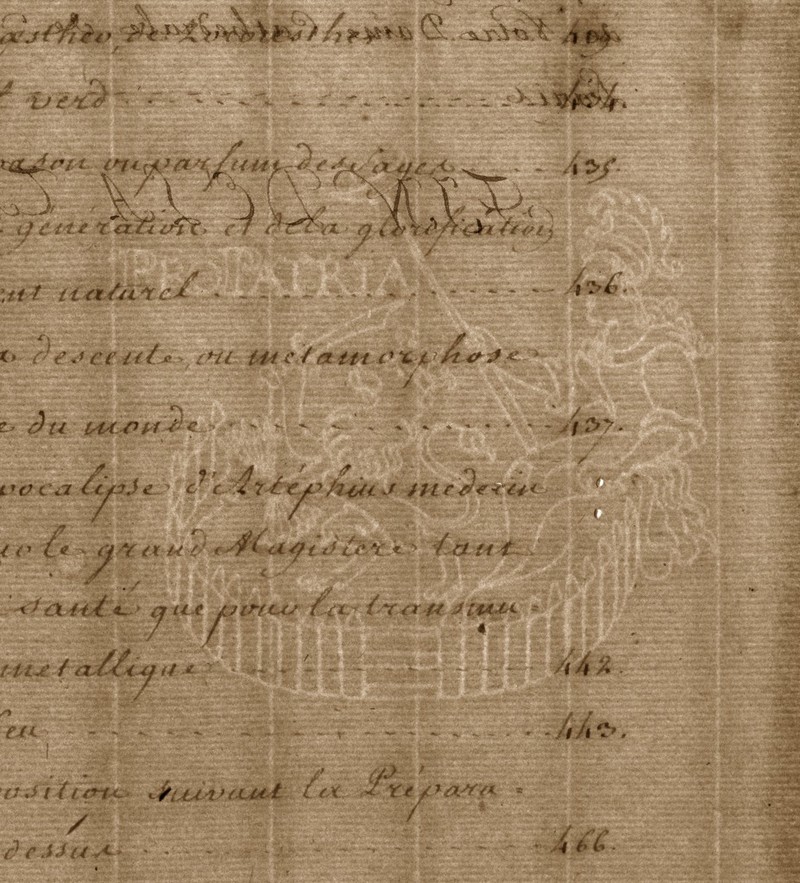 verd 434.
ou parfum des sages 435.
génération et de la glorification
naturel 436.
PRO PATRIA
descente, ou metamorphose
du monde 437.
d'Artéphius medecin
le grand Magistere tant
santé que pour la transmu=
metallique 442.
443.
suivant la Prépara=
dessus 466.